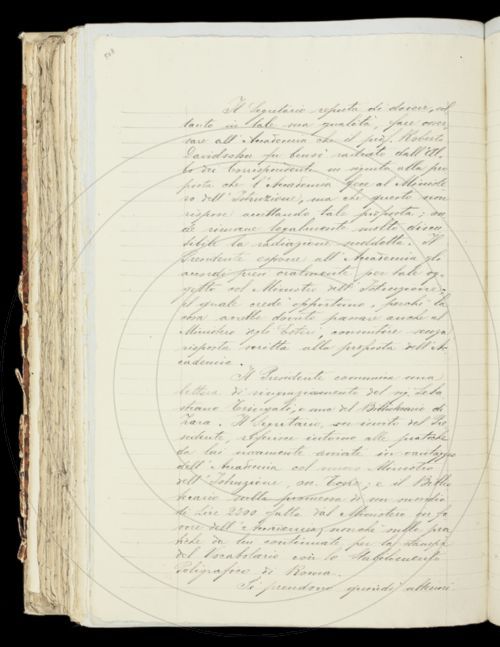 Il Segretario reputa di dover, sol
tanto in tale sua qualità, fare osser
vare all'Accademia che il prof. Roberto
Davidsohn fu bensì radiato dall'Al
bo dei Corrispondenti in seguito alla pro
posta che l'Accademia fece al Ministe
ro dell'Istruzione, ma che questo non
rispose accettando tale proposta; on
de rimane legalmente molto discu
tibile la radiazione suddetta. Il
Presidente espone all'Accademia gli
accordi presi oralmente per tale og
getto col Ministro dell'Istruzione,
il quale credè opportuno, perchè la
cosa avrebbe dovuto passare anche al
Ministero degli Esteri, consentire senza
risposta scritta alla proposta dell'Ac
cademia.
Il Presidente comunica una
lettera di ringraziamento del Seba
stiano e una del Bibliotecario di
Zara. Il Segretario, su invito del Pre
sidente, riferisce intorno alle pratiche
da lui novamente avviate in vantaggio
dell'Accademia col nuovo Ministro
dell'Istruzione, on. e il Biblio
tecario sulla promessa di un sussidio
di Lire 2500 fatta dal Ministero in fa
vore dell'Accademia, nonché sulle pra
tiche da lui continuate per la stampa
del Vocabolario con lo Stabilimento
Poligrafico di Roma.
Si prendono quindi alcuni